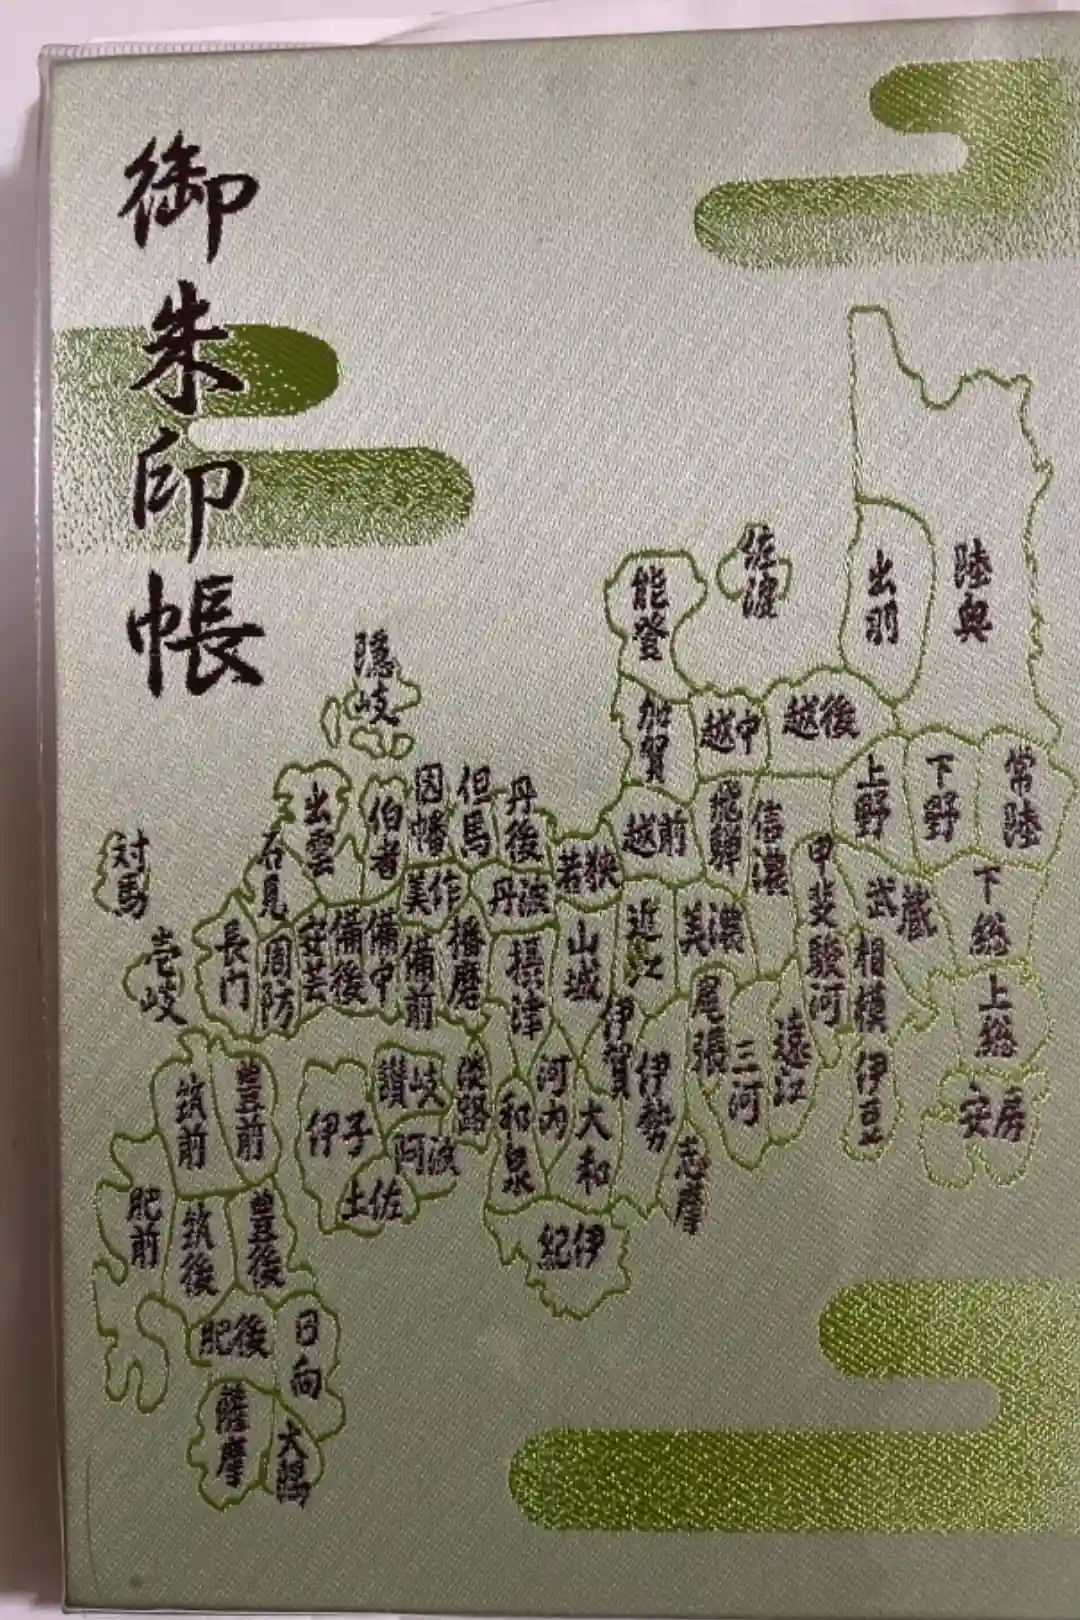 御朱印帳
陸奥
出羽
佐渡
能登
加賀
越中
越後
上野
下野
常陸
隠岐
出雲
伯者
因幡
但馬
丹後
若狭
越前
飛騨
信濃
甲斐
武蔵
下総
対馬
石見
美作
丹波
山城
近江
美濃
駿河
相模
上総
壱岐
長門
周防
安芸
備後
備中
備前
播磨
摂津
伊賀
尾張
三河
遠江
伊豆
安房
筑前
豊前
伊予
讃岐
淡路
阿波
土佐
和泉
河内
大和
伊勢
志摩
紀伊
肥前
筑後
豊後
肥後
日向
薩摩
大隅